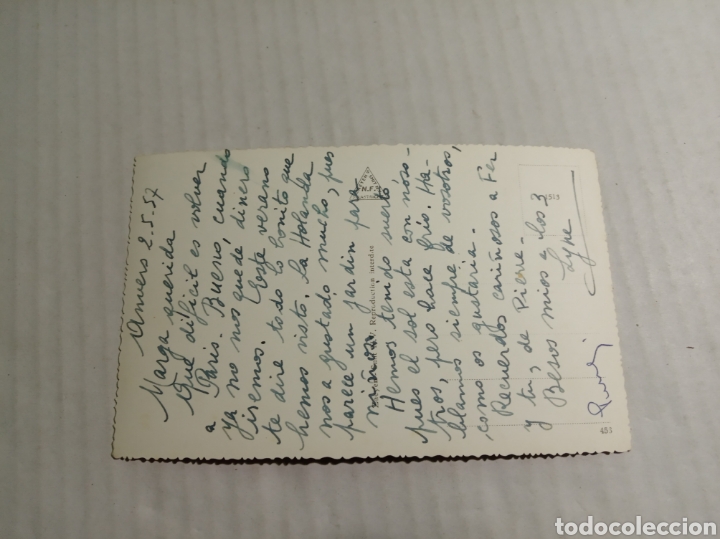 Anvers 2.5.57
Marga querida
Qué dificil es volver
a Paris. Bueno, cuando
ya no nos quede dinero
iremos. Este verano
te dire todo lo bonito que
hemos visto. La Holanda
nos a gustado mucho, pues
parece un jardin para
niños.
Hemos tenido suerte
pues el sol esta con noso-
tros, pero hace frio. Ha-
blamos siempre de vosotros,
como os gustaria.
Recuerdos cariñosos a Fer
y tu, de Pierre.
Besos mios a los 3
Reproduction interdite
N.F.
451
todocoleccion